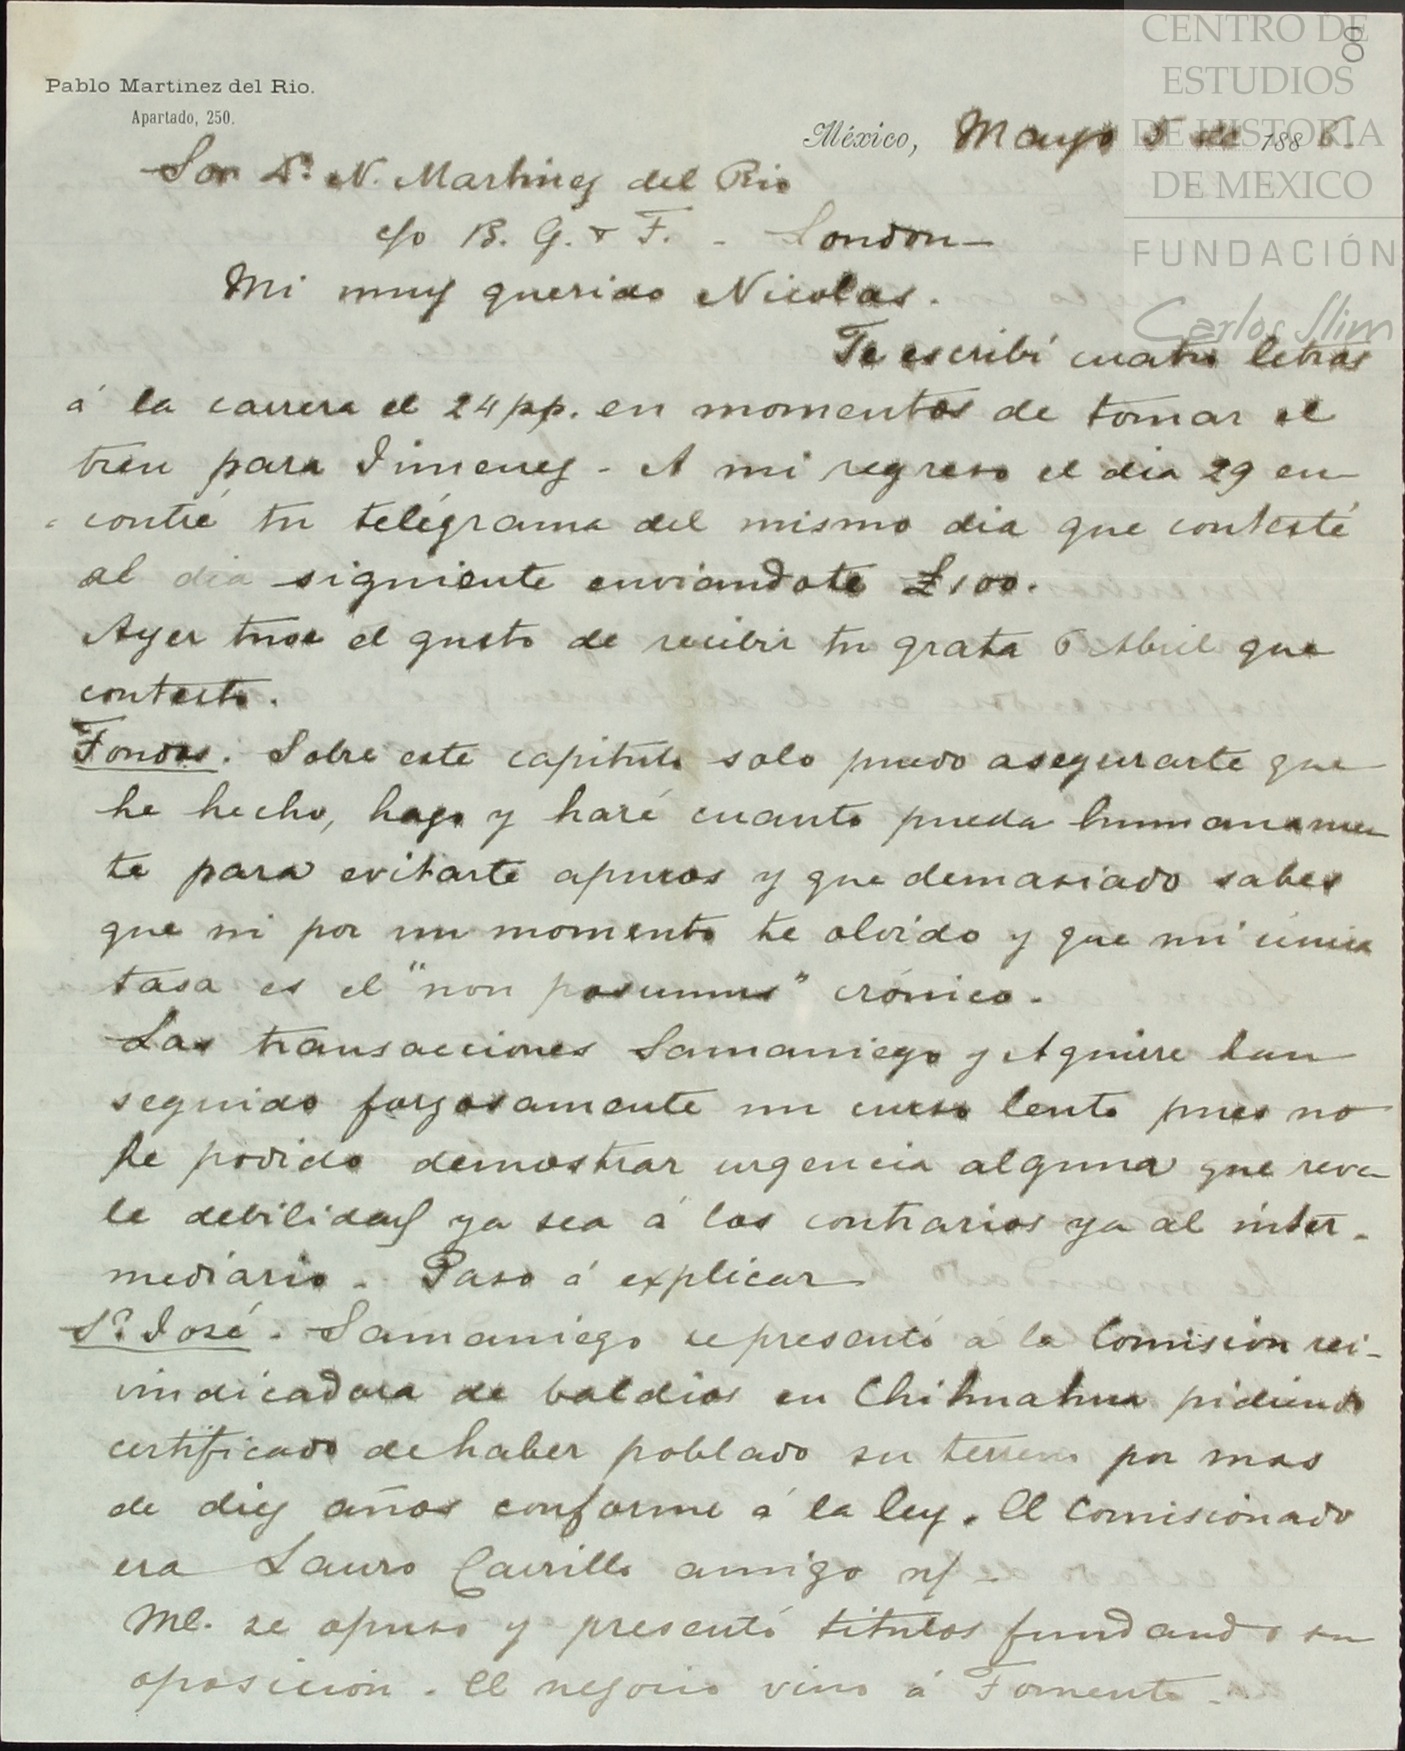 CENTRO DE
ESTUDIOS
DE HISTORIA
DE MEXICO
FUNDACIÓN
Carlos Slim
Pablo Martinez del Rio.
Apartado, 250.
México, Mayo 5 de 1886.
Sor Dn. N. Martinez del Rio
c/o B. G. & F. - London-
Mi muy querido Nicolas.
Te escribí cuatro letras
á la carrera el 24 pp. en momentos de tomar el
tren para Jimenez - A mi regreso el dia 29 en-
contré tu telégrama del mismo dia que contesté
al dia siguiente enviandote £100.
Ayer tuve el gusto de recibir tu grata 6 Abril que
contesto.
Fondos. Sobre este capitulo solo puedo asegurarte que
he hecho, hago y haré cuanto pueda humanamen-
te para evitarte apuros y que demasiado sabes
que ni por un momento te olvido y que mi única
tasa es el "non possumus" crónico.
Las transacciones Samaniego y Aguirre han
seguido forzosamente un curso lento pues no
he podido demostrar urgencia alguna que reve-
le debilidad ya sea á los contrarios ya al inter-
mediario. Paso á explicar
Sn. José. Samaniego se presentó á la Comisión rei-
vindicadora de baldios en Chihuahua pidiendo
certificado de haber poblado su terreno por mas
de diez años conforme á la ley. El Comisionado
era Lauro Carrillo amigo n/ -
Ml. se opuso y presentó titulos fundando su
oposición. El negocio vino á Fomento -